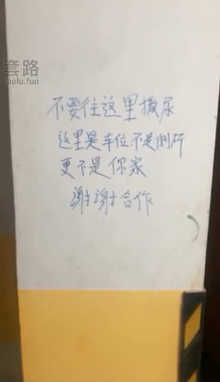 套路
aolu.fun
不要住这里撒尿
这里是车位不是厕所
更不是你家
谢谢合作